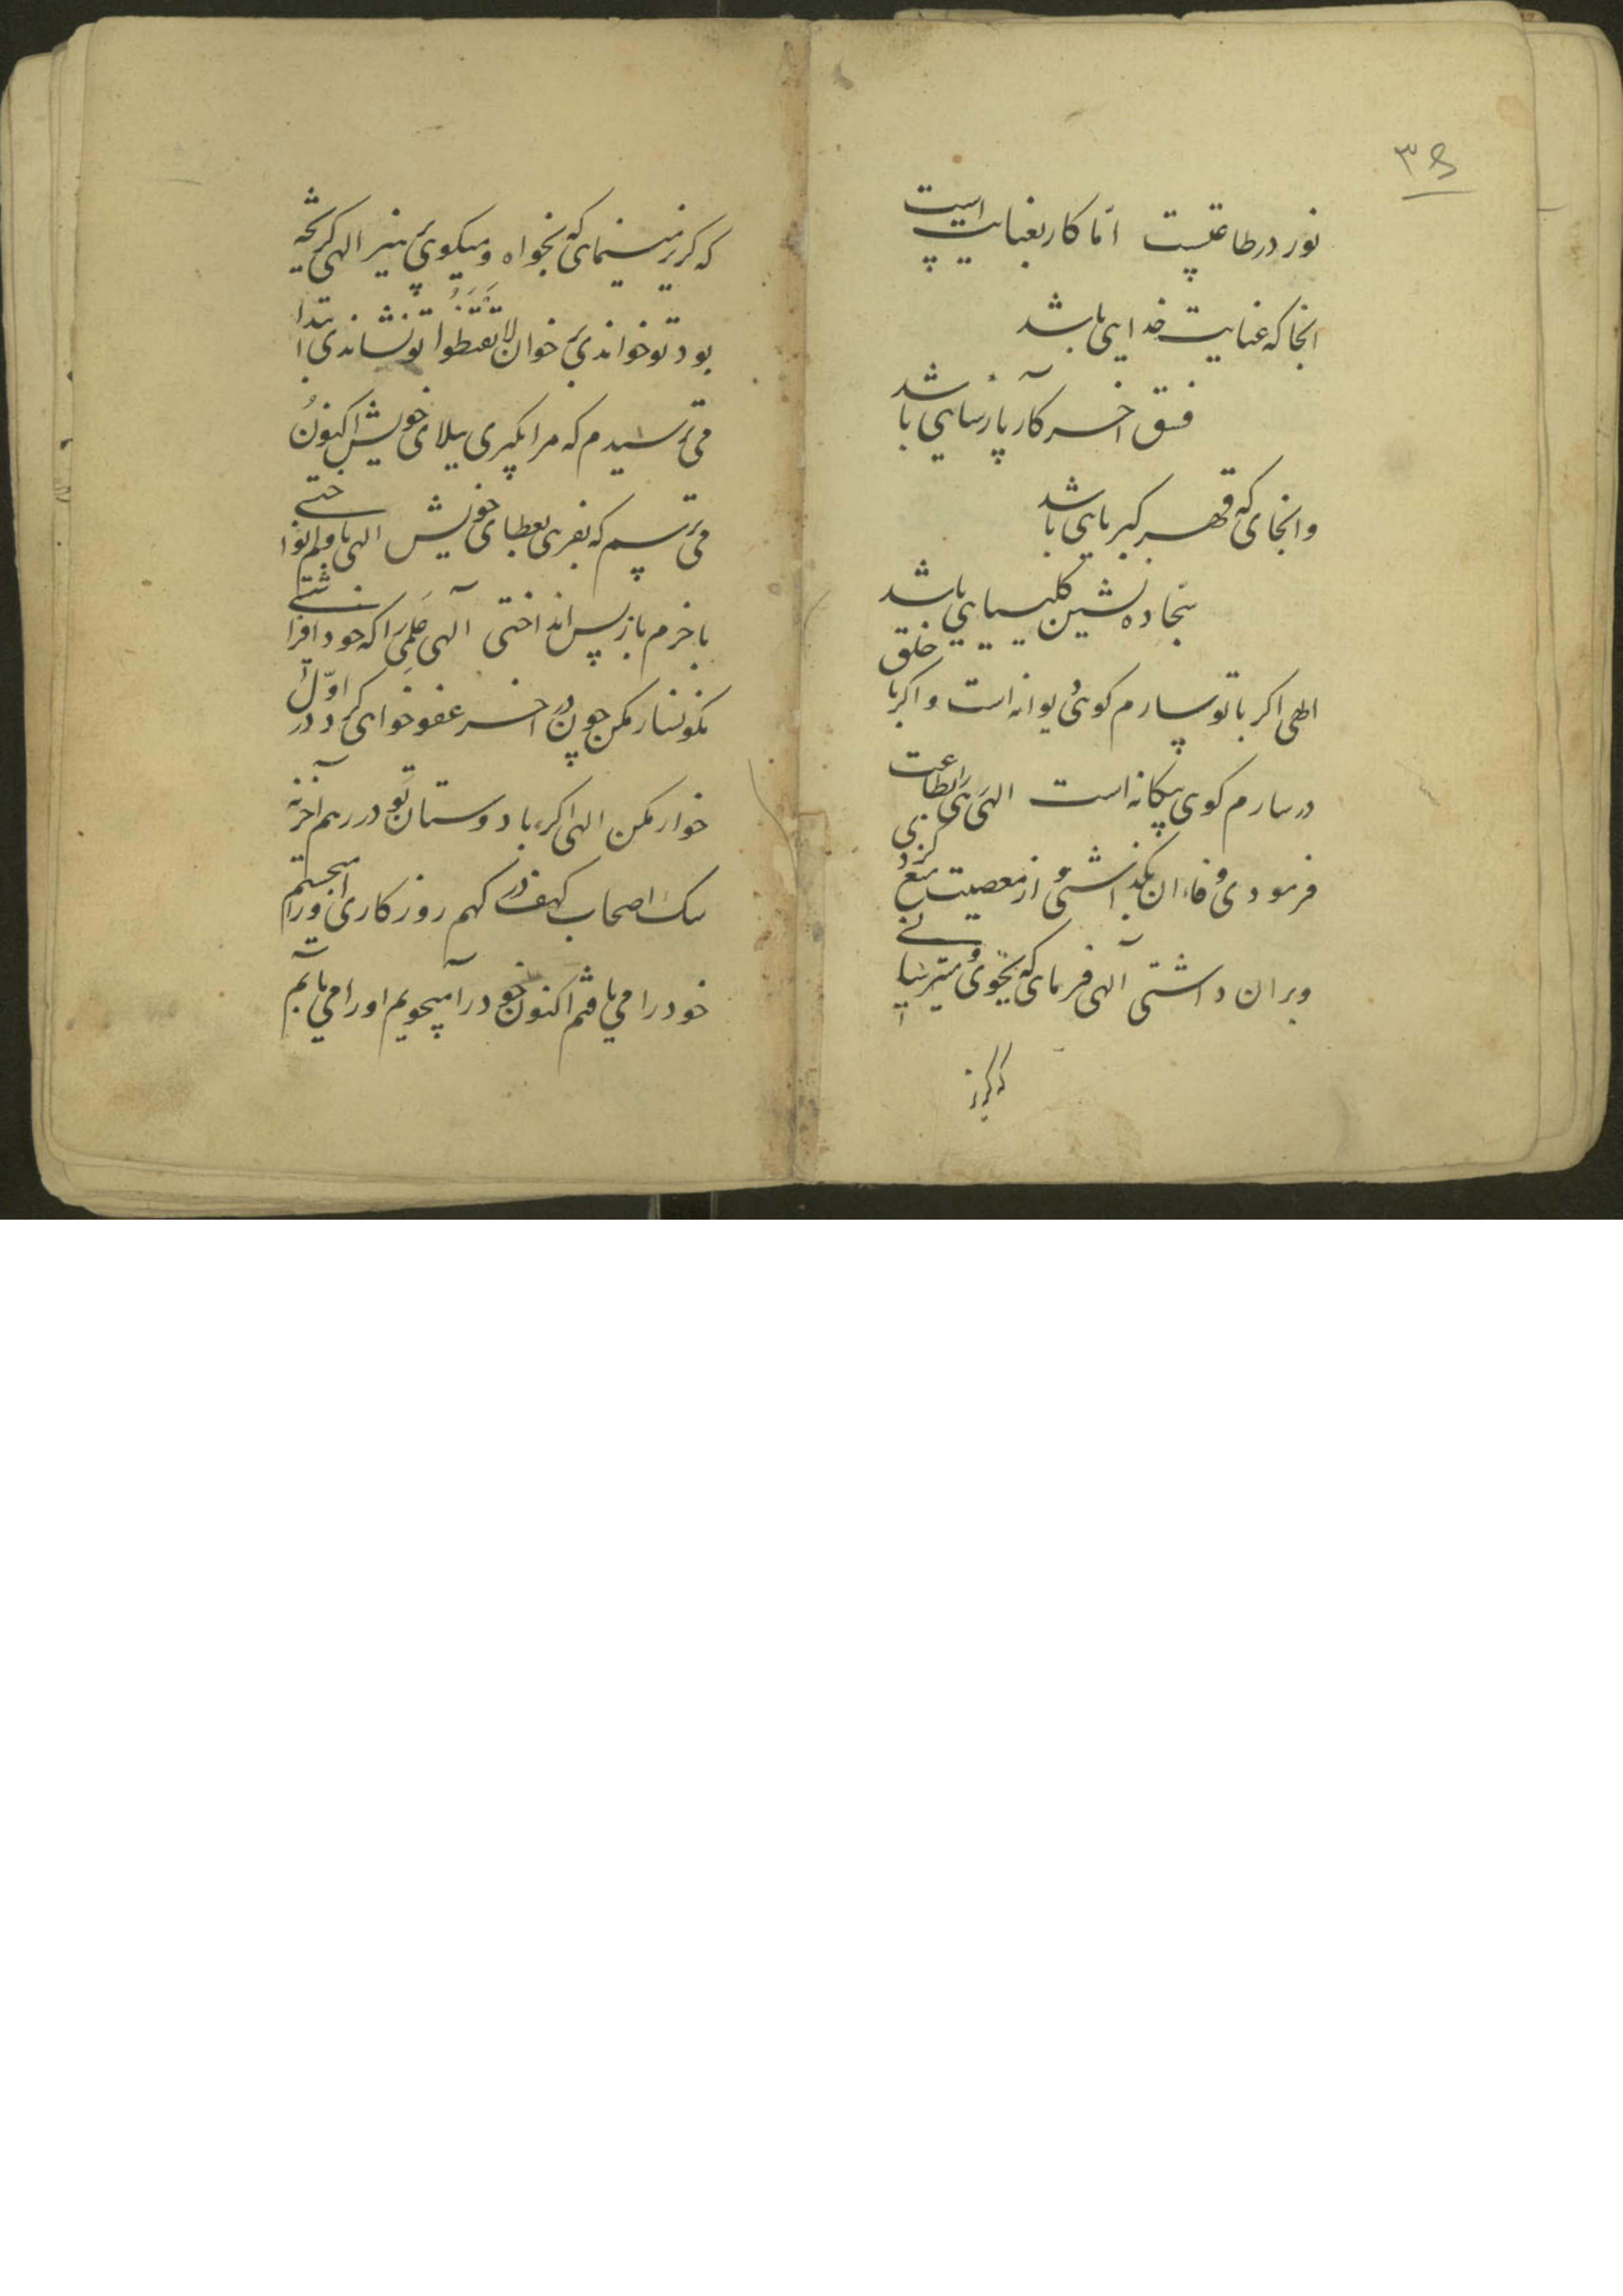 ۳۵
نور در طاعتست اما کار بعنایت است
انجا که عنایت خدایی باشد
فسق آخر کار پارسایی باشد
وانجای که قهر کبریایی باشد
سجاده نشین کلیسیایی باشد
الهی اکر با تو سازم کوئی دیوانه است و اکر با خلق
در سازم کوی بیکانه است الهی هی را بطاعت
فرمودی و فا ان بگذاشتی و از معصیت منع کردی
و بران داشتی آلهی فرمای که بجوی و میترسانی
که کریز
که کریز مینمای که بخواه و میکویی پرهیز الهی کریخته
بود تو خواندی خوان لا تَقْنَطُوا تو نشاندی ابتدا
می ترسیدم که مرا بگیری ببلای خویش اکنون
می ترسم که بفریبی بعطای خویش الهی باولم نواختی
باخرم باز پس انداختی آلهی عَلَمی را که خود افراشتی
نکونسار مکن چون در اخر عفو خواهی کرد در اوّل
خوار مکن الهی اکر با دوستان تو در رهم آخر نه
سک اصحاب کهف در کهم روزکاری اورا میجستم
خود را می یافتم اکنون خود را میجویم او را می یابم